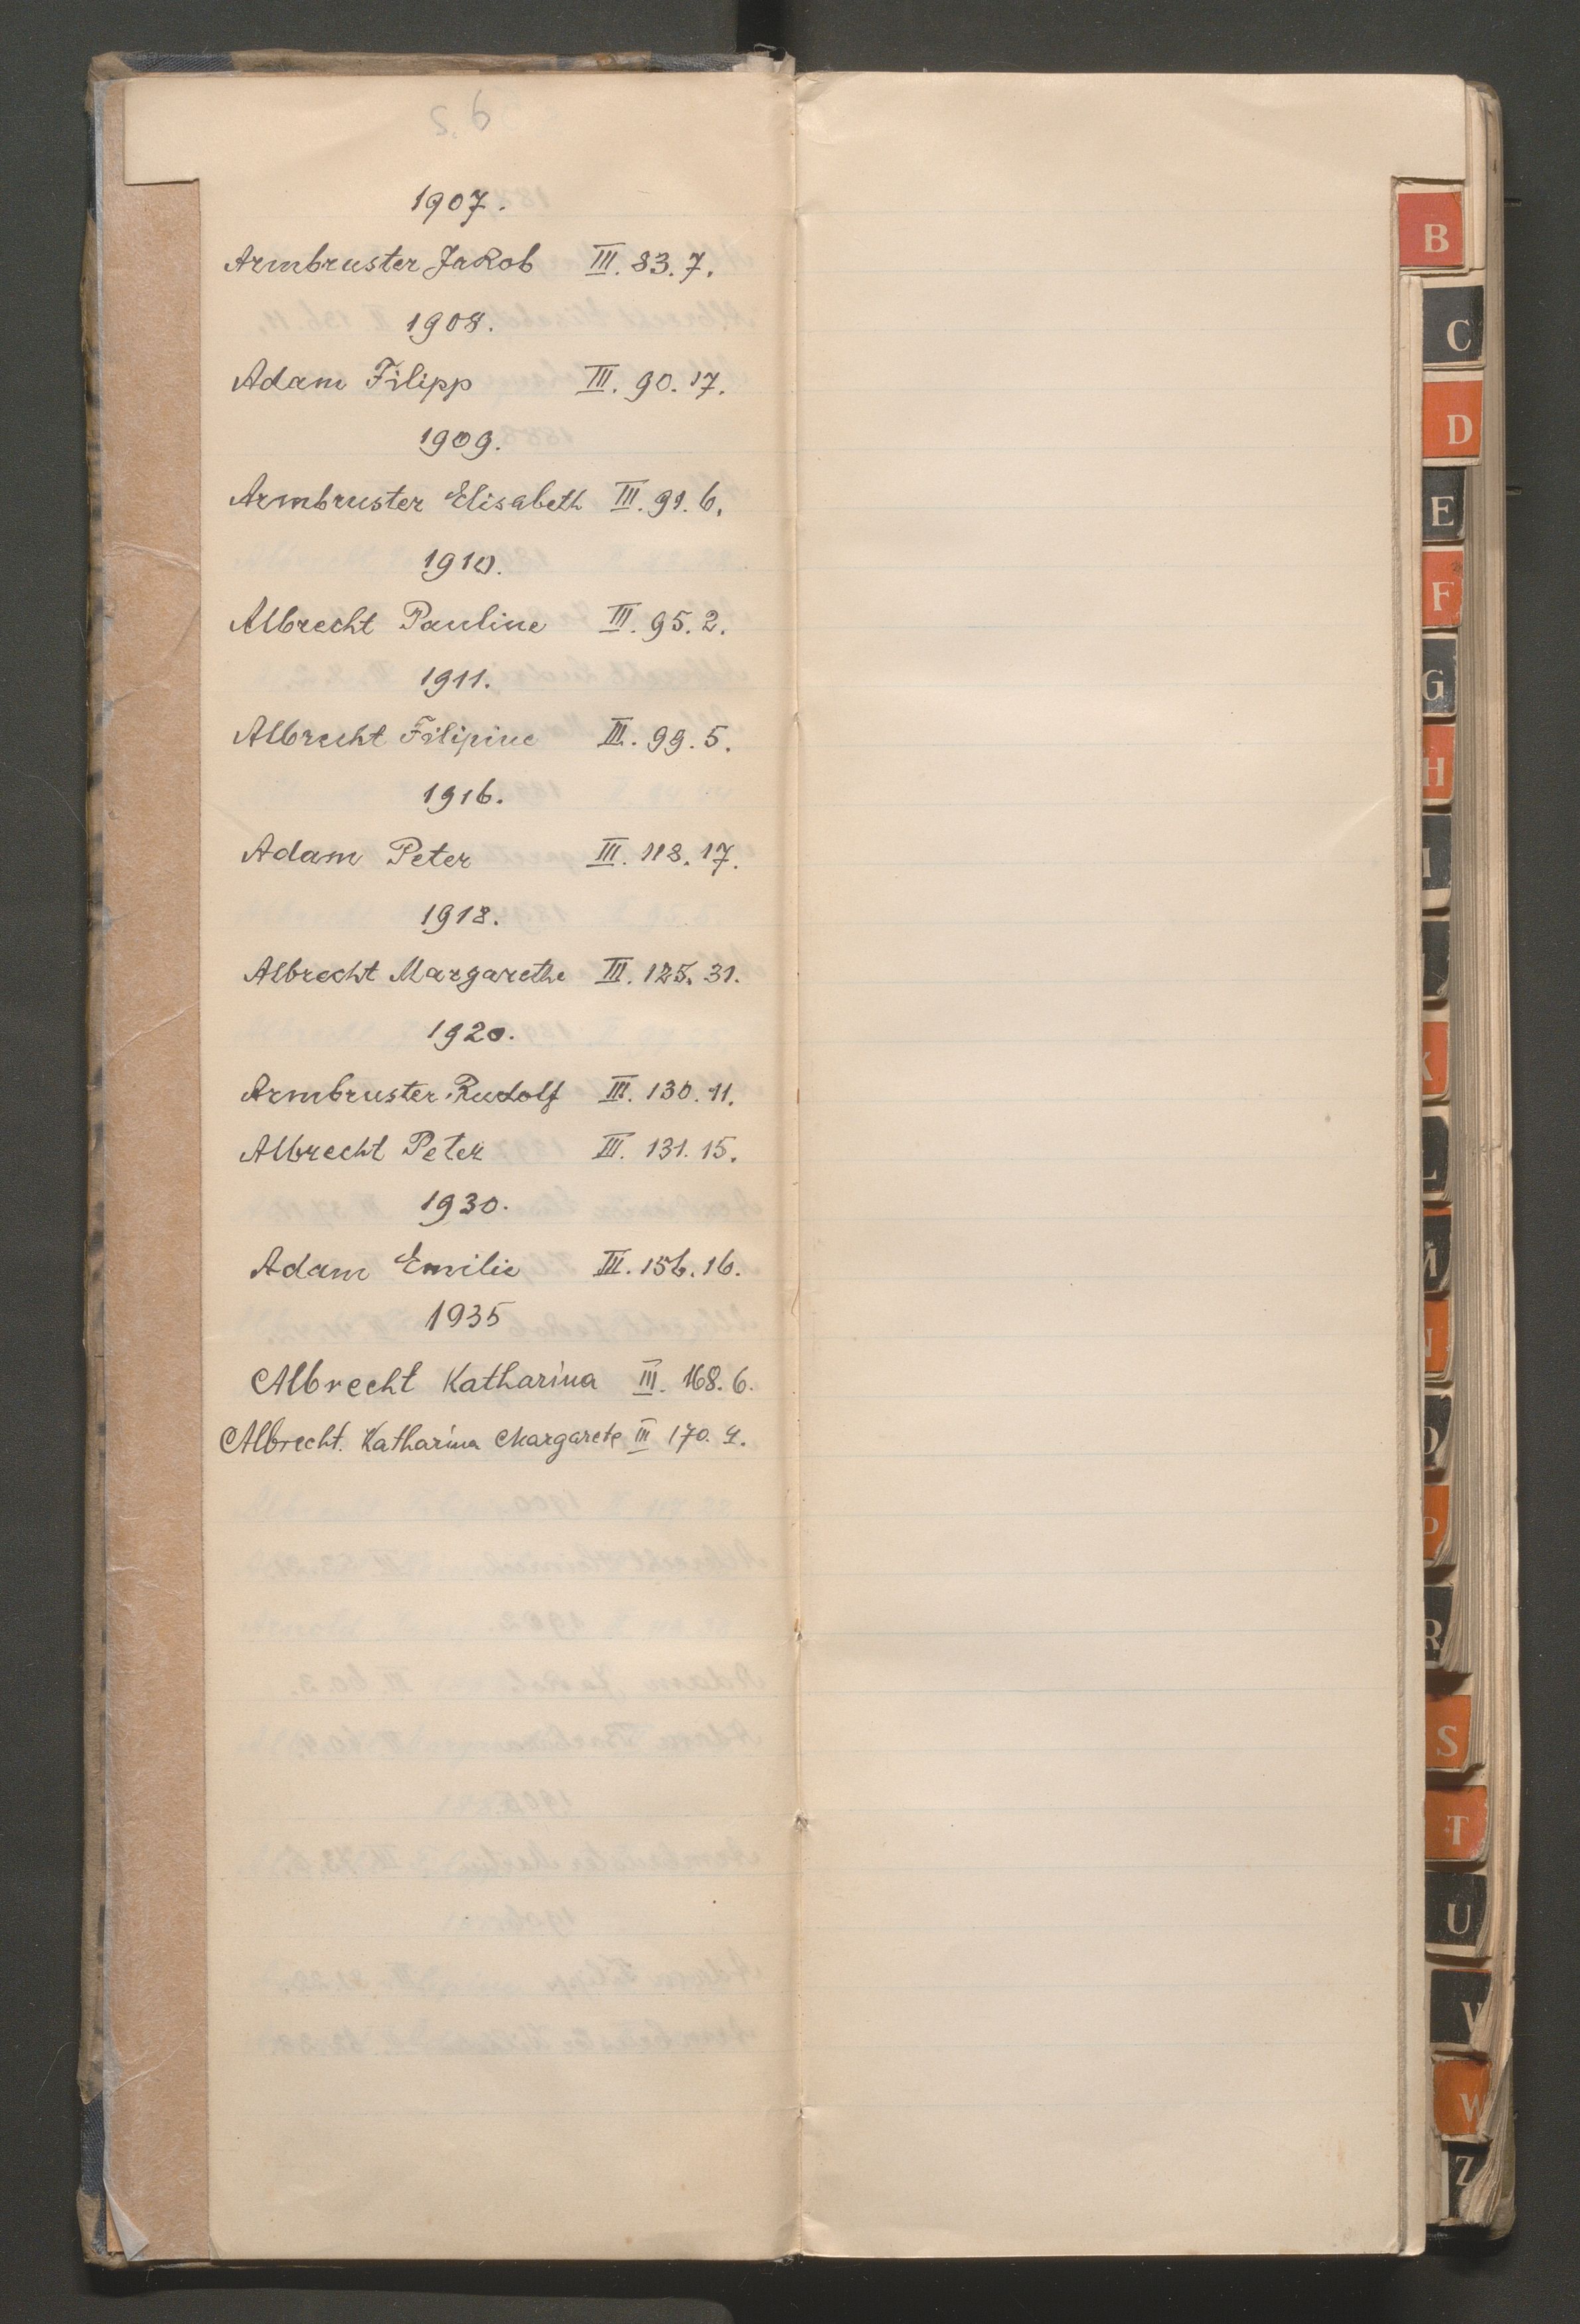 1907.
Armbruster Jakob III. 83. 7.
1908.
Adam Filipp III. 90. 17.
1909.
Armbruster Elisabeth III. 91. 6.
1910.
Albrecht Pauline III. 95. 2.
1911.
Albrecht Filipine III. 99. 5.
1916.
Adam Peter III. 118. 17.
1918.
Albrecht Margarethe III. 125. 31.
1920.
Armbruster Rudolf III. 130. 11.
Albrecht Peter III. 131. 15.
1930.
Adam Emilie III. 156. 16.
1935
Albrecht Katharina III. 168. 6.
Albrecht. Katharina Margarete III 170. 4.
B
C
D
E
F
G
H
I
K
L
M
N
O
P
R
S
T
U
V
W
Z